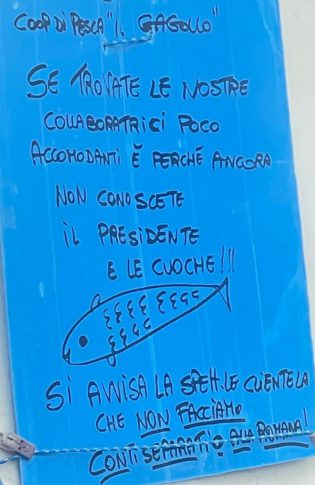 COOP DI PESCA "IL GAGOLLO"
SE TROVATE LE NOSTRE
COLLABORATRICI POCO
ACCOMODANTI È PERCHÉ ANCORA
NON CONOSCETE
IL PRESIDENTE
E LE CUOCHE!!!
SI AVVISA LA SPETT.LE CLIENTELA
CHE NON FACCIAMO
CONTI SEPARATI O ALLA ROMANA!